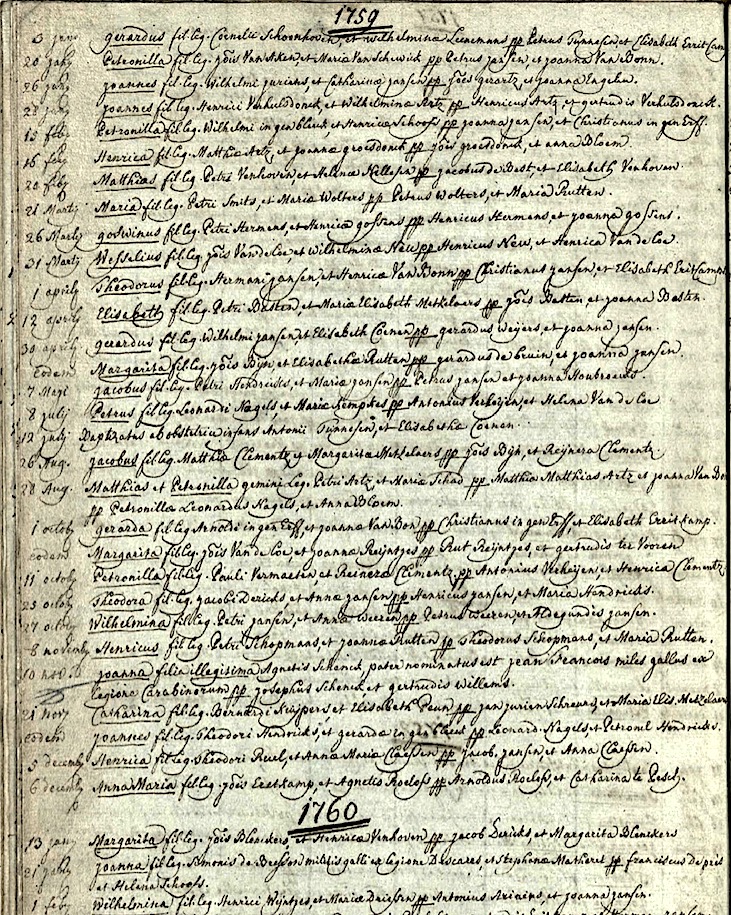 1759
3 gerardus fil. leg. Cornelii Schoonhoven, et Wilhelmina pp Petrus Tunnesen et Elisabeth
20 janry Petronilla fil leg. Jois Van Aken et Maria Van Schewick pp Petrus jansen, et joanna Van Bonn.
26 janry joannes fil. leg. Wilhelmi juriens et Catharina jansen pp jois gerartz et joanna
28 janry joannes fil. leg. Henrici Verhulsdonck et Wilhelmina Artz pp Henricus Artz, et gertrudis Verhulsdonck.
15 feby Petronilla fil leg. Wilhelmi ingenbleek et Henrica Schoofs pp joanna jansen, et Christianus in gen Erff.
16 feby Henrica fil. leg. Matthia Artz, et joanna groesdonck pp jois groesdonck, et anna Bloem.
20 feby Matthias fil leg. Petri Venhoven, et Helena pp jacobus de Best et Elisabeth Venhoven
21 Martij Maria fil leg. Petri Smits, et Maria Wolters pp Petrus Wolters, et Maria Rutten.
26 Martij goswinus fil leg. Petri Hermens, et Henrica gossens pp Henricus Hermens, et joanna gossens.
31 Martij Wesselius fil leg. jois Van de Loe et Wilhelmina New pp Henricus New, et Henrica Van de Loe.
1 aprily Theodorus fil leg. Hermani jansen, et Henrica Van Bonn pp Christianus jansen, et Elisabeth
12 aprily Elisabeth fil leg. Petri Basten, et Maria Elisabeth Metzelaers pp jois Basten et joanna Basten.
30 aprily gerardus fil leg. Wilhelmi jansen et Elisabeth Coenen pp gerardus Weijers, et joanna jansen.
eodem Margarita fil leg. jois Bijn, et Elisabetha Rutten pp gerardus de bruin, et joanna jansen.
7 Maji jacobus fil leg. Petri Hendricks, et Maria jansen pp Petrus jansen et joanna
8 julij Petrus fil leg. Leonardi Nagels, et Maria Kempkes pp Antonius Verheijen, et Helena Van de Loe
12 julij Baptizatus ab obstetrice infans Antonii Tunnesen, et Elisabetha Coenen.
26 Aug. jacobus fil leg. Matthia Clementz, et Margarita Metzelaers pp jois Bijn, et Reijnera Clementz.
28 Aug. Matthias et Petronilla gemini Leg. Petri Artz, et Maria Schad pp Matthia Matthias Artz et joanna Van Bon
pp Petronilla Leonardus Nagels, et Anna Bloem.
1 octob gerarda fil leg. Arnoldi ingen Erff, et joanna Van Bon pp Christianus in gen Erff, et Elisabeth Erritkamp.
eodem Margarita fil leg. jois Van de Loe, et joanna Reijntjes pp Rut Reijntjes, et gertrudis ter Vooren
11 octob Petronilla fil leg. Pauli Vermasen et Reinera Clementz pp Antonius Verheijen, et Henrica Clementz
23 octob Theodora fil. leg. jacobi Dericks et Anna jansen pp Henricus jansen, et Maria Hendricks.
27 octob Wilhelmina fil. leg. Petri jansen, et Anna Weeren pp Petrus Weeren, et Aldegundis jansen.
8 november Henricus fil leg. Petri Schopmans, et joanna Rutten pp Theodorus Schopmans, et Maria Rutten.
10 joanna filia illegitima Agnetis Schenck, pater nominatus est jean Francois miles gallus ex
legione Carabinorum pp josephus Schenck, et gertrudis Willems.
Catharina fil leg. Bernardi Kuijpers, et Elisabeth pp jan jurien Schreurs, et Maria Elis. Metzelaers
eodem joannes fil leg. Theodori Hendricks, et gerarda in gen bleek pp Leonard. Nagels, et Petronel Hendricks.
5 decemb Henrica fil leg. Theodori et Anna Maria Claessen pp jacob. jansen, et Anna Classen.
6 decemb Anna Maria fil leg. jois Eretkamp, et Agnetis Roelofs pp Arnoldus Roelofs, et Catharina te Pesch.
1760
13 jan Margarita fil leg. jois Blenckers, et Henrica Venhoven pp jacob Dericks, et Margarita Blenckers
21 janry joanna fil leg. Simonis de militis galli ex legione Descares, et Stephana Matheret pp Franciscus
et Helena Schoofs.
1 feb Wilhelmina fil. leg. Henrici Wijntjes, et Maria Driessen pp Antonius Ariaens, et joanna jansen.